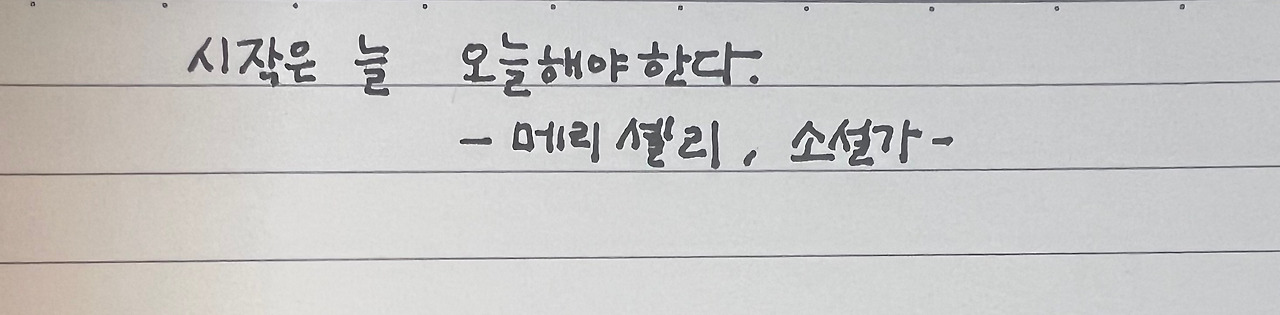 시작은 늘 오늘해야한다.
- 메리 셸리, 소설가 -